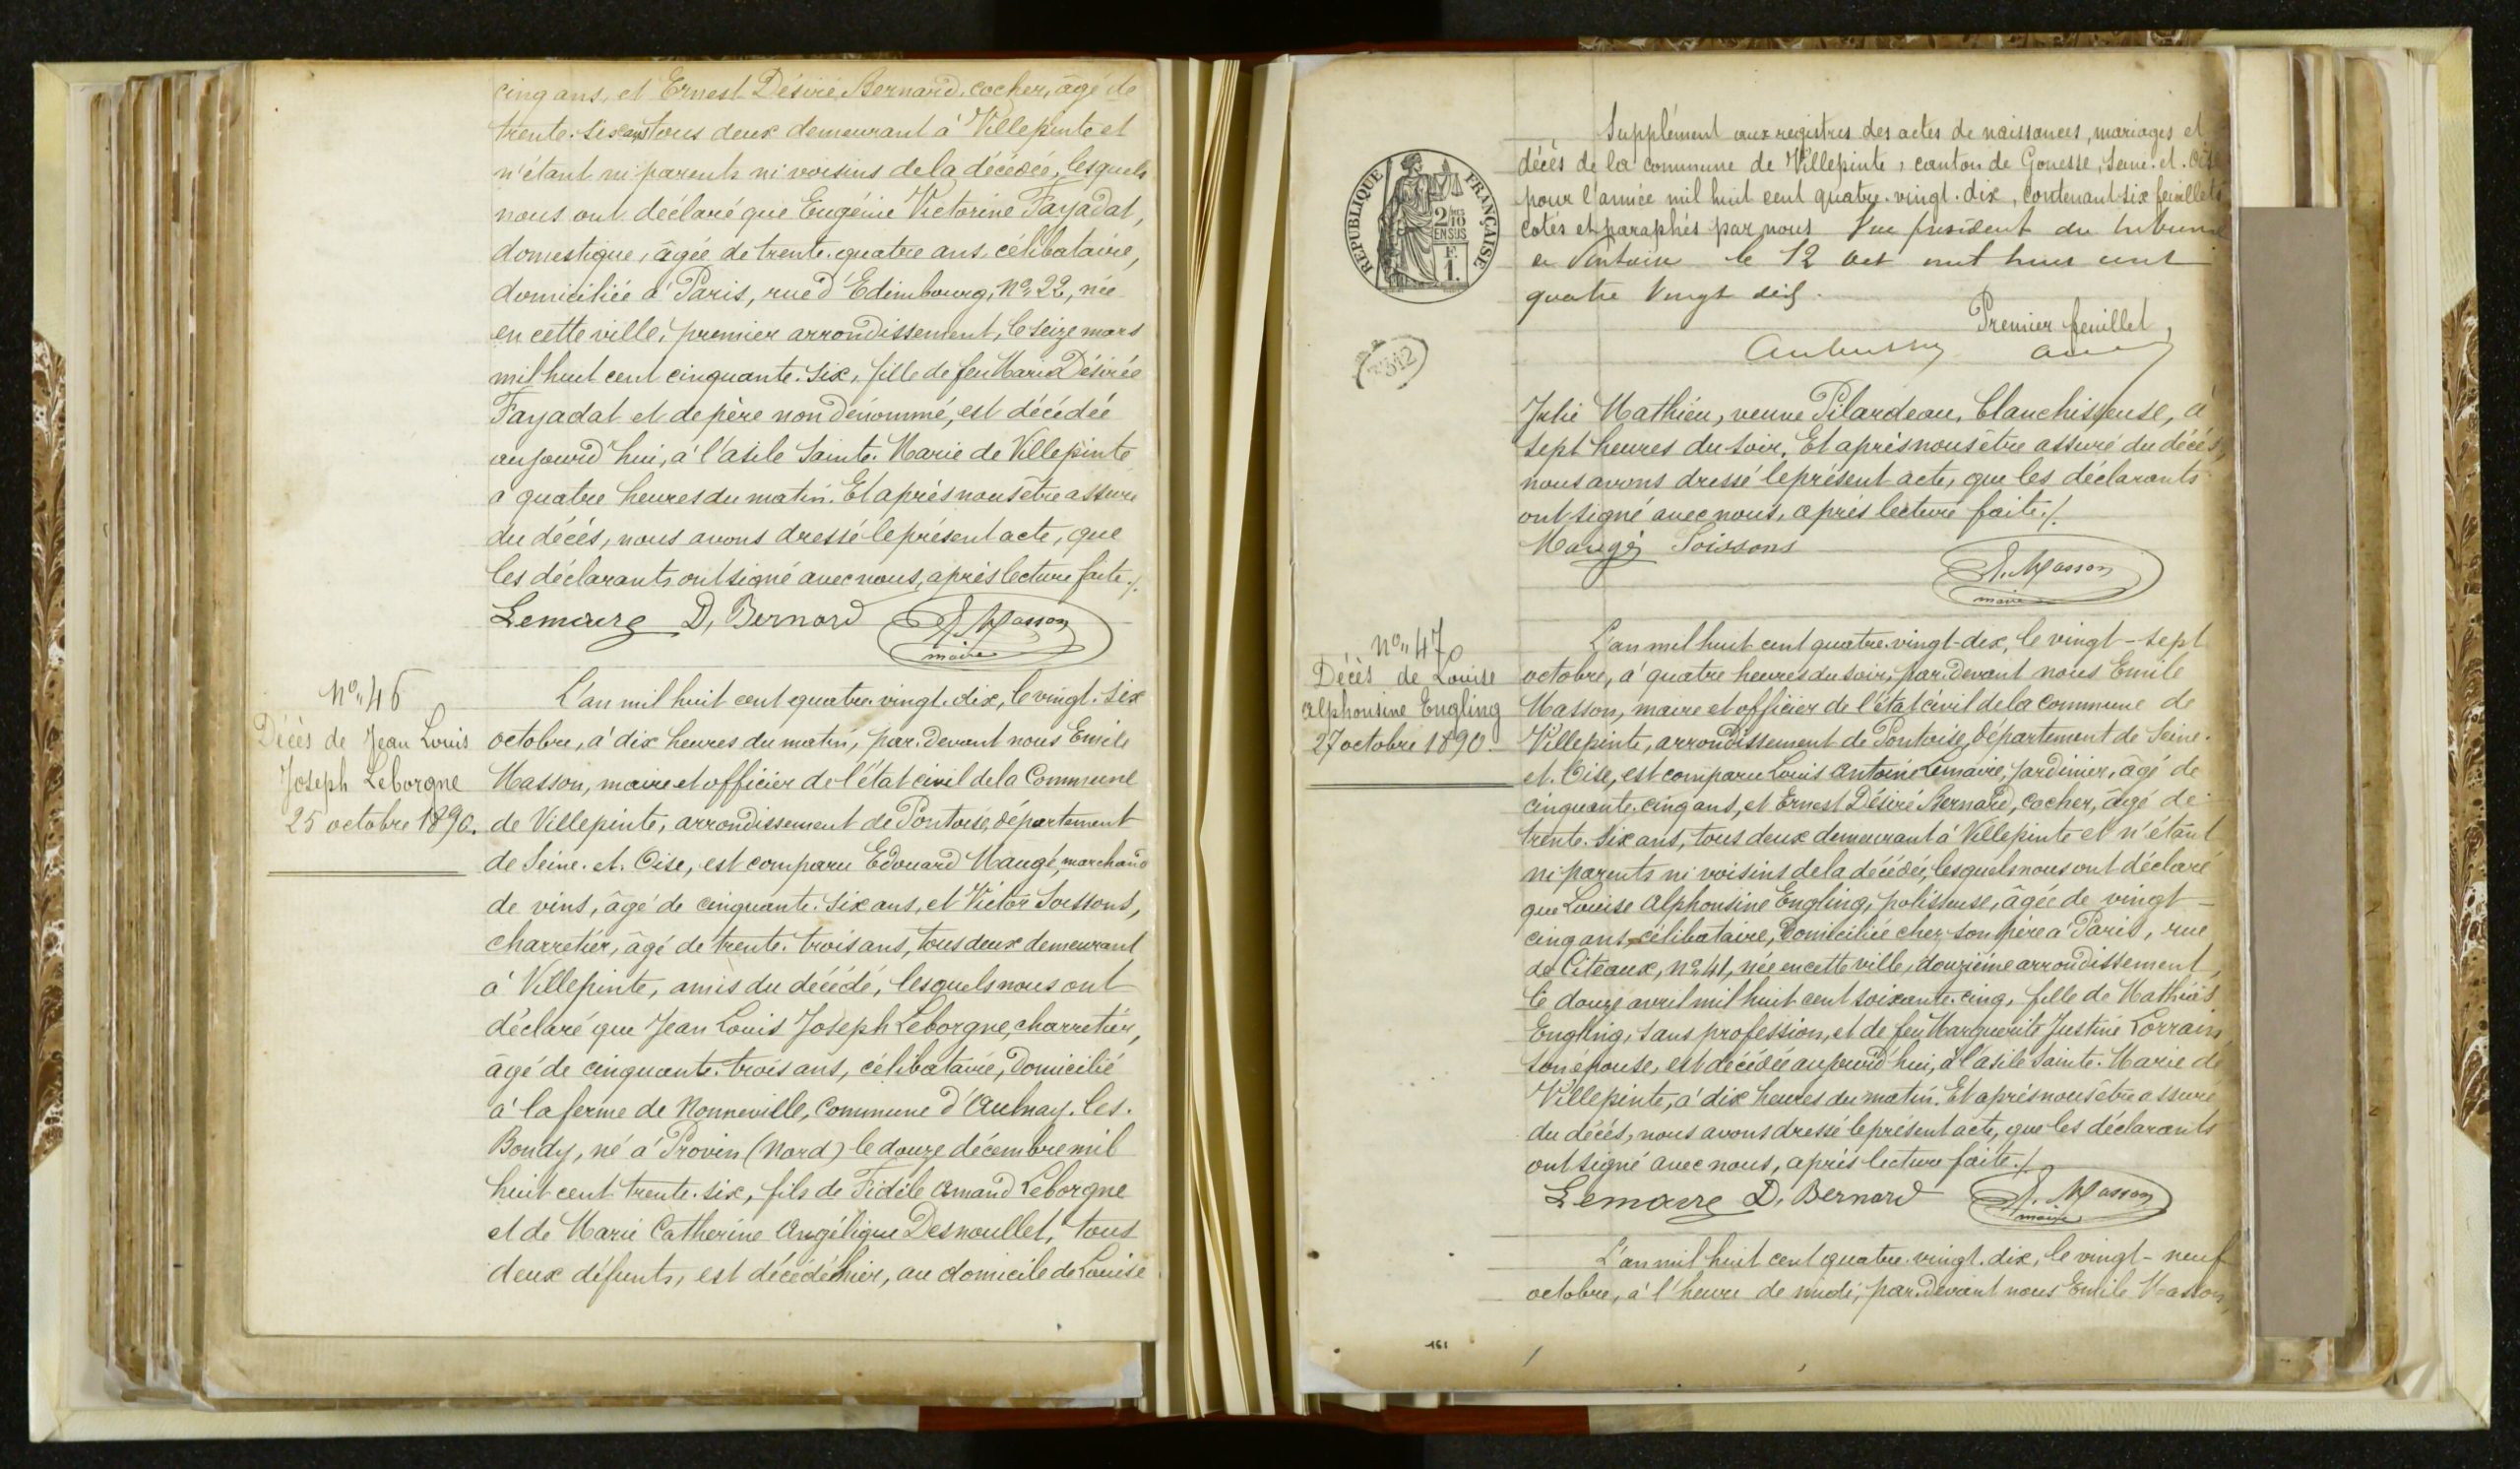 cinq ans, et Ernest Désiré Bernard, cocher, âgé de
trente-six ans, tous deux demeurant à Villepinte et
n'étant ni parents ni voisins de la décédée, lesquels
nous ont déclaré que Eugénie Victorine Fayadat,
domestique, âgée de trente-quatre ans, célibataire,
domiciliée à Paris, rue d'Edimbourg, No 22, née
en cette ville, premier arrondissement, le seize mars
mil huit cent cinquante-six, fille de feu Marie Désirée
Fayadat et de père non dénommé, est décédée
aujourd'hui, à l'asile Sainte-Marie de Villepinte
à quatre heures du matin. Et après nous être assuré
du décès, nous avons dressé le présent acte, que
les déclarants ont signé avec nous, après lecture faite./.
Lemaire D. Bernard E. Masson
maire
No 46
Décès de Jean Louis
Joseph Leborgne
25 octobre 1890.
L'an mil huit cent quatre-vingt-dix, le vingt-six
octobre, à dix heures du matin, par-devant nous Emile
Masson, maire et officier de l'état civil de la Commune
de Villepinte, arrondissement de Pontoise, département
de Seine-et-Oise, est comparu Edouard Maugé, marchand
de vins, âgé de cinquante-six ans, et Victor Soissons,
charretier, âgé de trente-trois ans, tous deux demeurant
à Villepinte, amis du décédé, lesquels nous ont
déclaré que Jean Louis Joseph Leborgne, charretier,
âgé de cinquante-trois ans, célibataire, domicilié
à la ferme de Nonneville, commune d'Aulnay-les-
Bondy, né à Provin (Nord) le douze décembre mil
huit cent trente-six, fils de Fidèle Amand Leborgne
et de Marie Catherine Angélique Desnoullet, tous
deux défunts, est décédé hier, au domicile de Louise
Supplément aux registres des actes de naissances, mariages et
décès de la commune de Villepinte, canton de Gonesse, Seine-et-Oise
pour l'année mil huit cent quatre-vingt-dix, contenant six feuillets
cotés et paraphés par nous Vice président du tribunal
de Pontoise le 12 oct mil huit cent
quatre vingt dix.
Premier feuillet,
REPUBLIQUE FRANÇAISE
2/10
EN SUS
F.
1
342
Julie Mathieu, veuve Pilardeau, blanchisseuse, à
sept heures du soir. Et après nous être assuré du décès,
nous avons dressé le présent acte, que les déclarants
ont signé avec nous, après lecture faite./.
Maugé Soissons
E. Masson
maire
No 47
Décès de Louise
Alphonsine Engling
27 octobre 1890.
L'an mil huit cent quatre-vingt-dix, le vingt-sept
octobre, à quatre heures du soir, par-devant nous Emile
Masson, maire et officier de l'état civil de la commune de
Villepinte, arrondissement de Pontoise, département de Seine-
et-Oise, est comparu Louis Antoine Lemaire, jardinier, âgé de
cinquante-cinq ans, et Ernest Désiré Bernard, cocher, âgé de
trente-six ans, tous deux demeurant à Villepinte et n'étant
ni parents ni voisins de la décédée, lesquels nous ont déclaré
que Louise Alphonsine Engling, polisseuse, âgée de vingt-
cinq ans, célibataire, domiciliée chez son père à Paris, rue
de Citeaux, No 41, née en cette ville, douzième arrondissement,
le douze avril mil huit cent soixante-cinq, fille de Mathias
Engling, sans profession, et de feu Marguerite Justine Lorrain,
son épouse, est décédée aujourd'hui, à l'asile Sainte-Marie de
Villepinte, à dix heures du matin. Et après nous être assuré
du décès, nous avons dressé le présent acte, que les déclarants
ont signé avec nous, après lecture faite./.
Lemaire D. Bernard E. Masson
maire
L'an mil huit cent quatre-vingt-dix, le vingt-neuf
octobre, à l'heure de midi, par-devant nous Emile Masson,
161